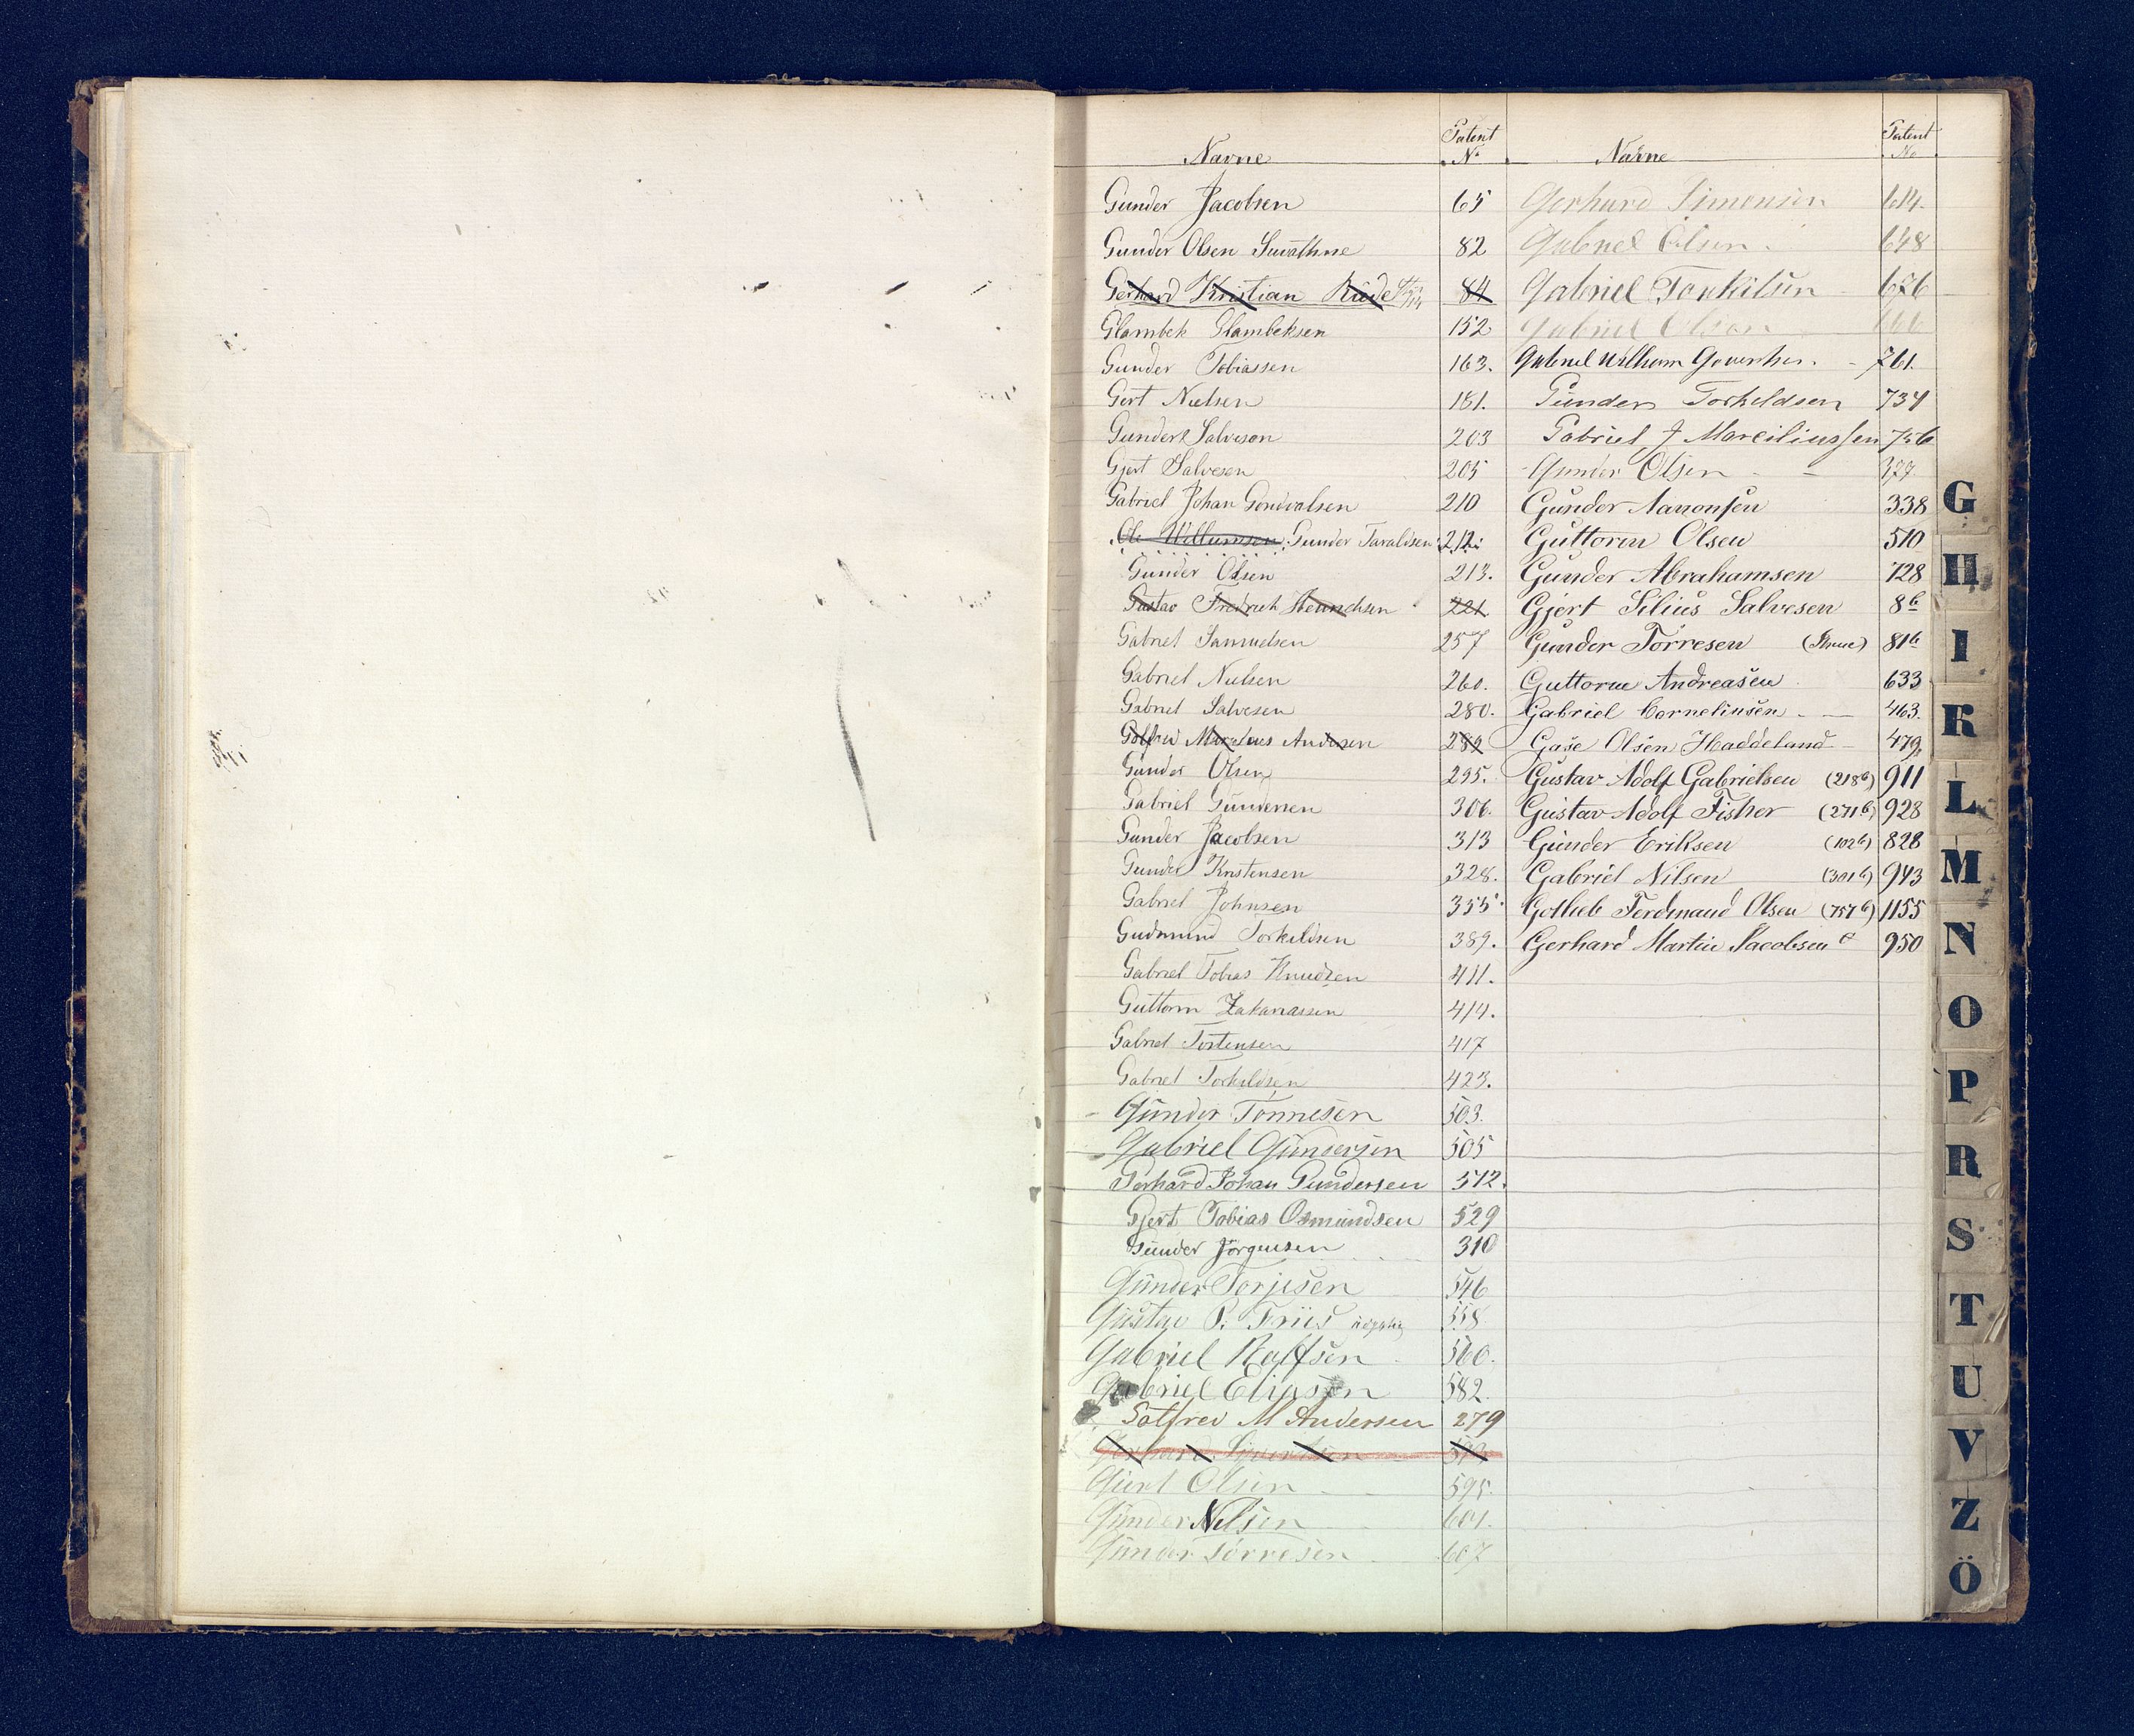 Navne Patent No
Gunder Jacobsen 65
Gunder Olsen 82
Gerhard Kristian 84
Glambek Glambeksen 152
Gunder Tobiassen 163.
Gert Nielsen 181.
Gunder Salveson 203
Gjert Salvesen 205
Gabriel Johan Gondvalsen 210
Ole Willumsen Gunder Taraldsen 212
Gunder Olsen 213.
Gustav Fredrick 221
Gabriel Samuelsen 257
Gabriel Nielsen 260.
Gabriel Salvesen 280.
Gotfred Andersen 289
Gunder Olsen 295.
Gabriel Gundersen 306.
Gunder Jacobsen 313
Gunder Kristensen 328.
Gabriel Johnsen 355.
Gudmund Torkildsen 389.
Gabriel Tobias Knudsen 411.
Guttorm Zakariassen 414.
Gabriel Tostensen 417
Gabriel Torkildsen 423.
Gunder Tönnesen 503.
Gabriel Gundersen 505
Gerhard Johan Gundersen 512.
Gjert Tobias Osmundsen 529
Gunder Jörgensen 310
Gunder Torjesen 546
Gustav P. Friis 558
Gabriel Rolfsen 560.
Gabriel Eliasen 582.
Gotfred M Andersen 279
Gerhard
Gjert Olsen 595.
Gunder Nilsen 601.
Gunder Törresen 607
Navne Patent No
Gerhard Simonsen 614.
Gabriel Olsen 648
Gabriel Torkilsen 676
Gabriel Olsen
Gabriel Wilhelm 761.
Gunder Torkildsen 734
Gabriel J Marciliussen 756
Gunder Olsen
Gunder Aanonsen 338
Guttorm Olsen 510
Gunder Abrahamsen 728
Gjert Silius Salvesen 8b
Gunder Törresen 81b
Guttorm Andreasen 633
Gabriel Cornelinsen 463.
Gase Olsen Haddeland 479
Gustav Adolf Gabrielsen (218b) 911
Gustav Adolf Fisher (271b) 928
Gunder Eriksen (102b) 828
Gabriel Nilsen (301b) 943
Gotlieb Ferdinand Olsen (757b) 1155
Gerhard Martin Jacobsen 950
G
H
I
K
L
M
N
O
P
R
S
T
U
V
Z
Ö